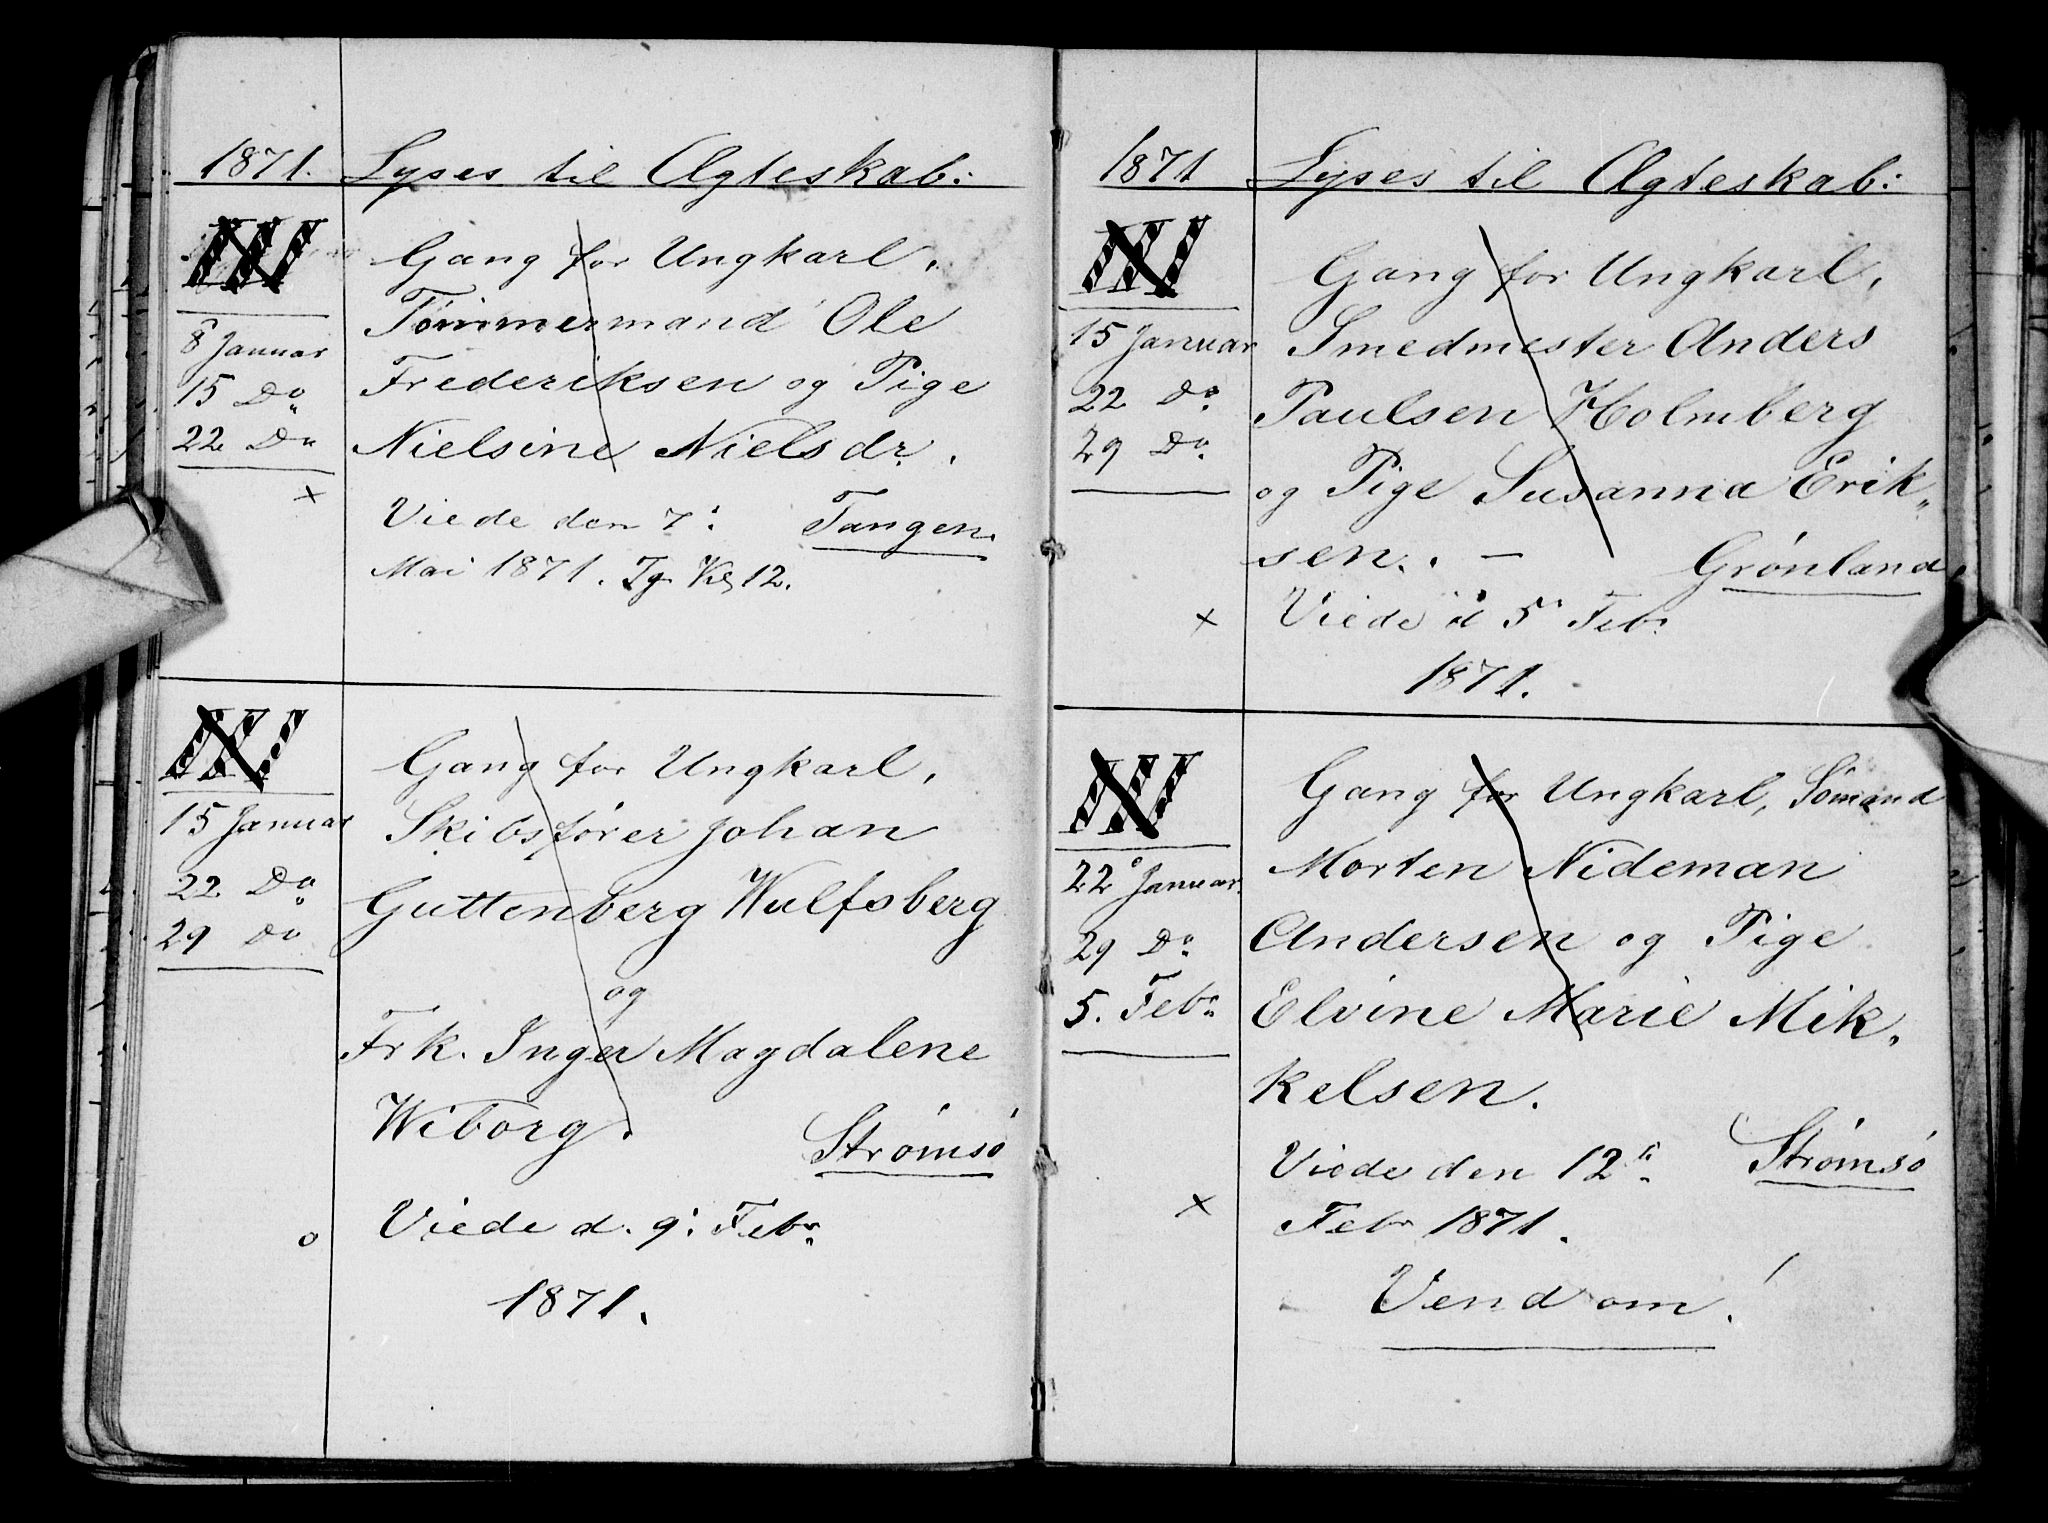 1871. Lyses til Ægteskab:
III
Gang for Ungkarl,
Tømmermand Ole
8 Januar
Frederiksen og Pige
15 Do
Nielsine Nielsdr.
22 Do
x
Viede den 7:
Tangen.
Mai 1871. Tg. Kl 12.
III
Gang for Ungkarl,
15 Januar
Skibsfører Johan
22. Do
Guttenberg Wulfsberg
29 Do
og
Frk. Inger Magdalene
Wiborg.
Strømsø
o Viede d. 9: Febr.
1871.
1871 Lyses til Ægteskab:
III
Gang for Ungkarl,
15 Januar
Smedmester Anders
22 Do.
Paulsen Holmberg
29 Do.
og Pige Susanna Erik-
sen. . –
Grønland
x Viede d 5 Febr
1871.
III
Gang for Ungkarl, Sømand
Morten Nideman
22 Januar.
Andersen og Pige
29 Do.
Elvine Marie Mik-
5. Febr.
kelsen.
Viede den 12
Strømsø
x Febr 1871.
Vend om!